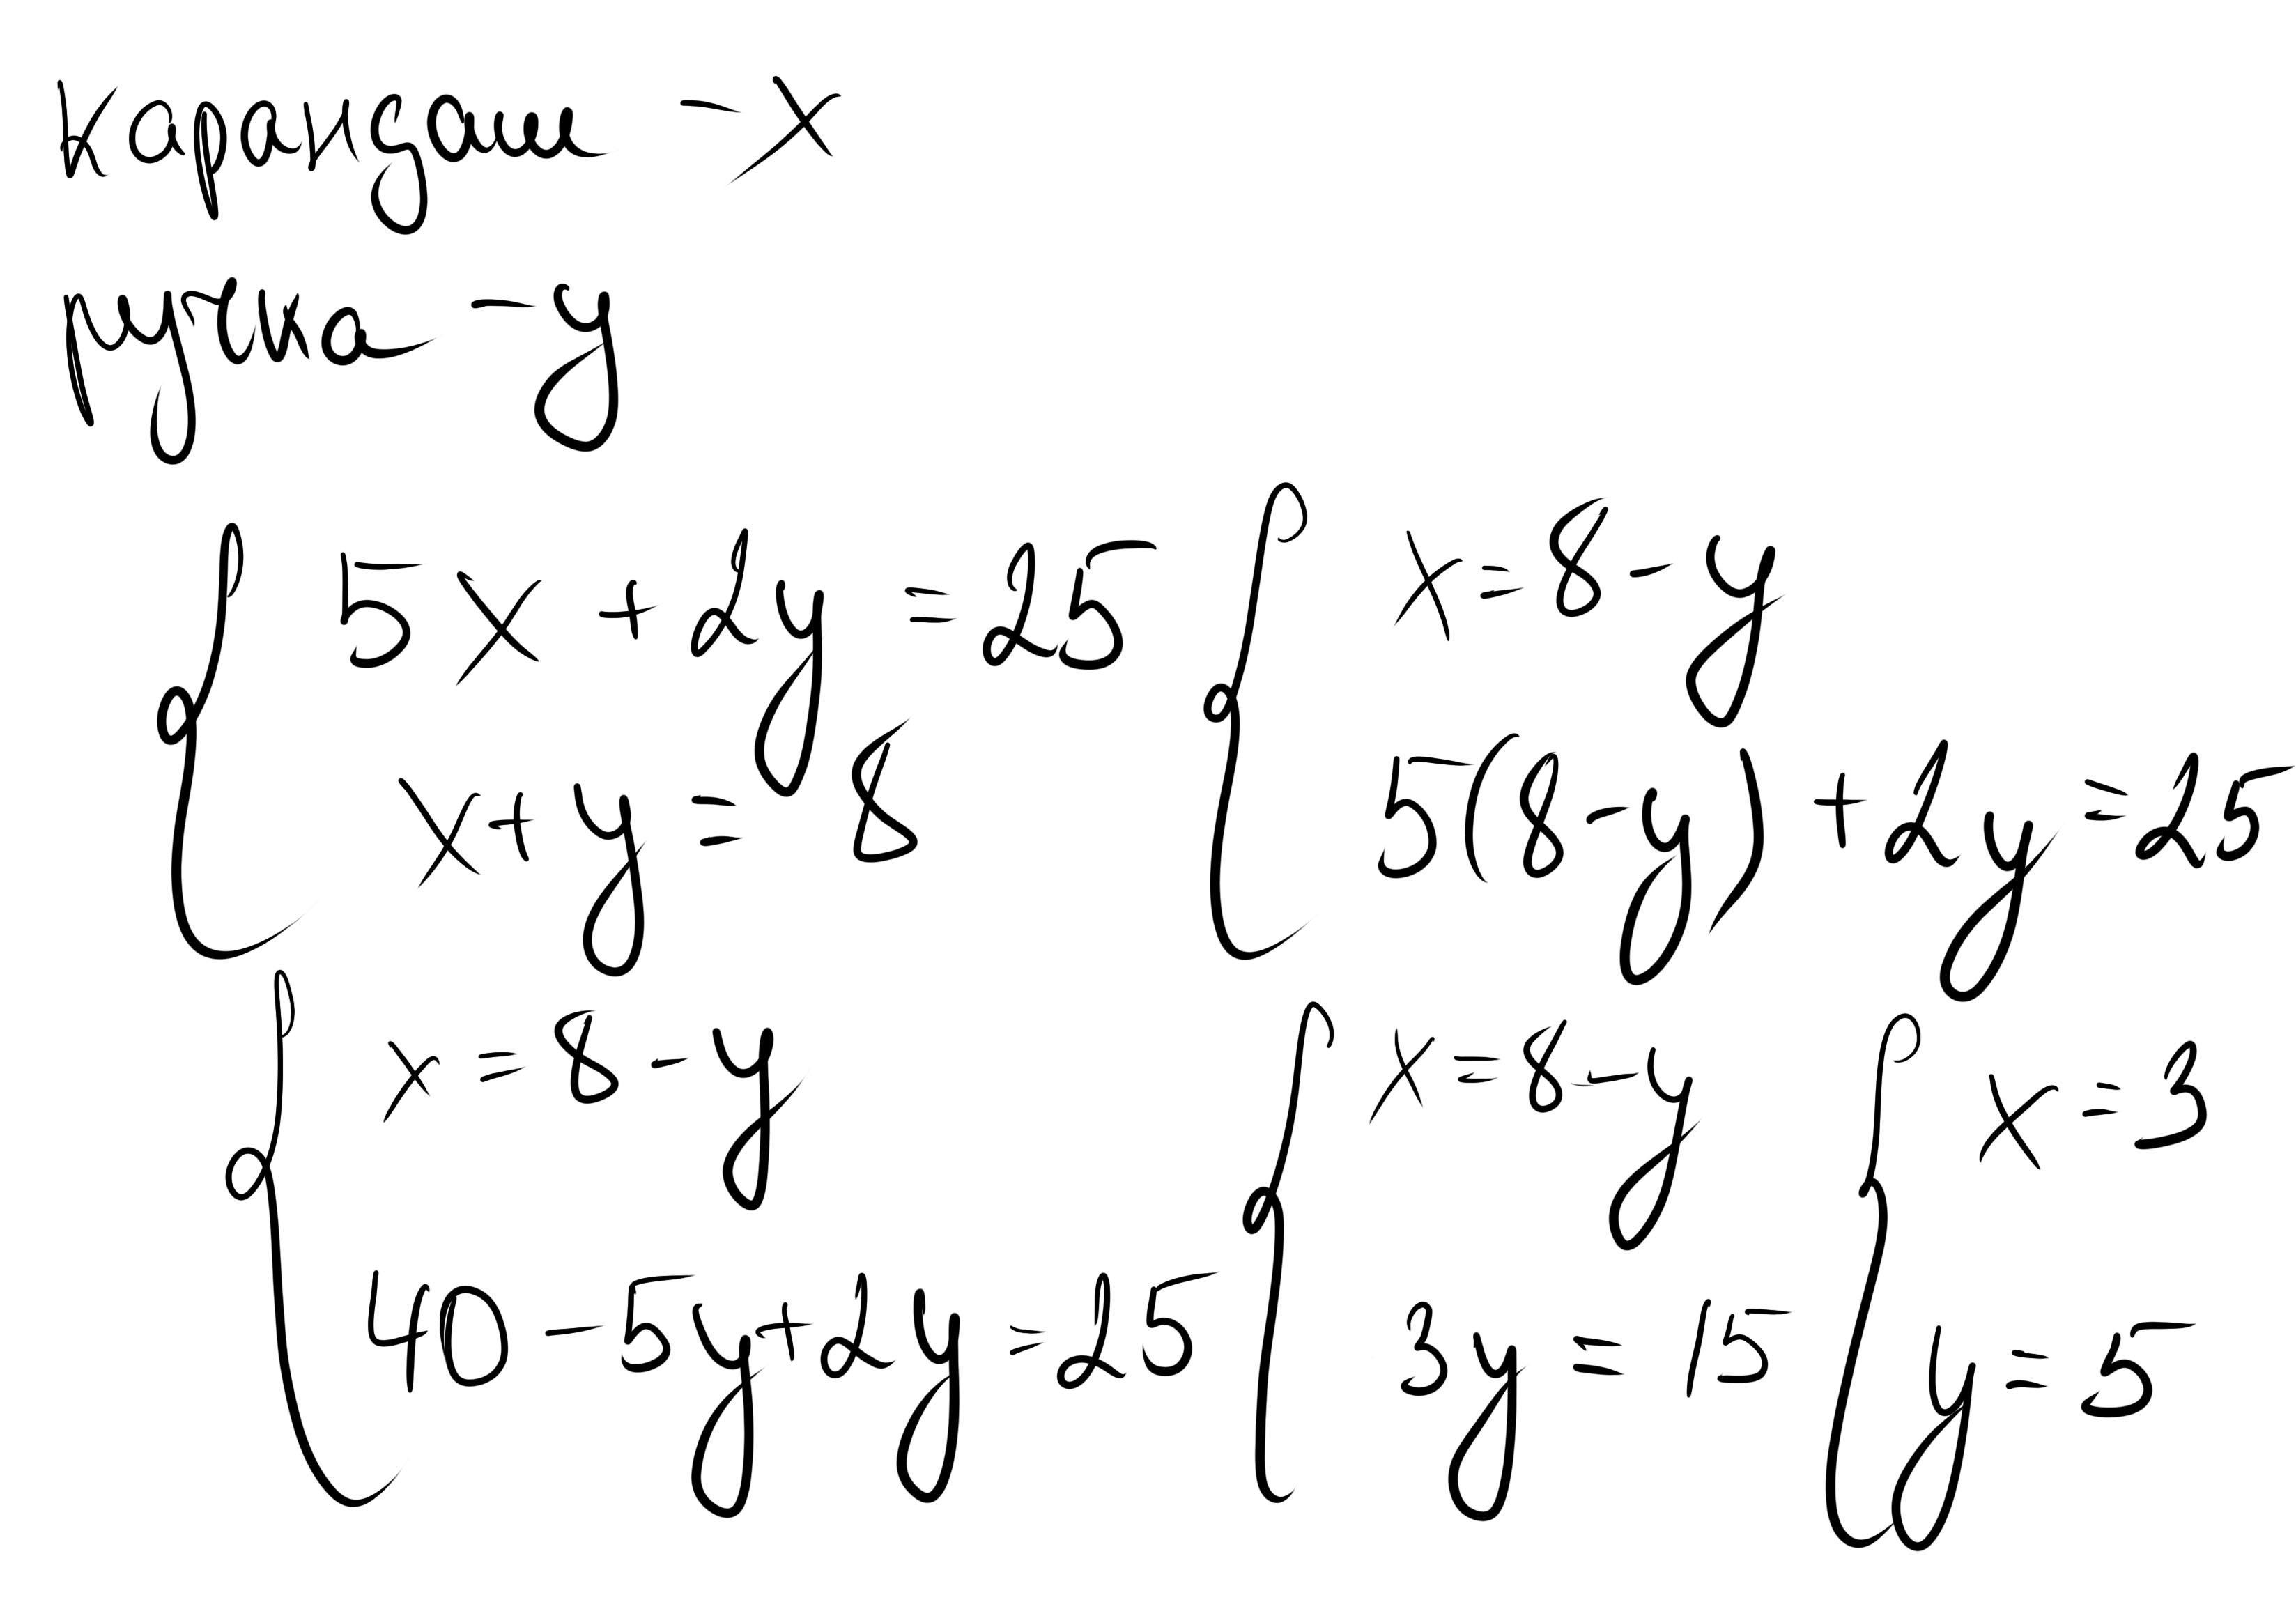 карандаш - x
ручка - y
5x + 2y = 25
x + y = 8
x = 8 - y
5(8 - y) + 2y = 25
x = 8 - y
40 - 5y + 2y = 25
x = 8 - y
3y = 15
x = 3
y = 5